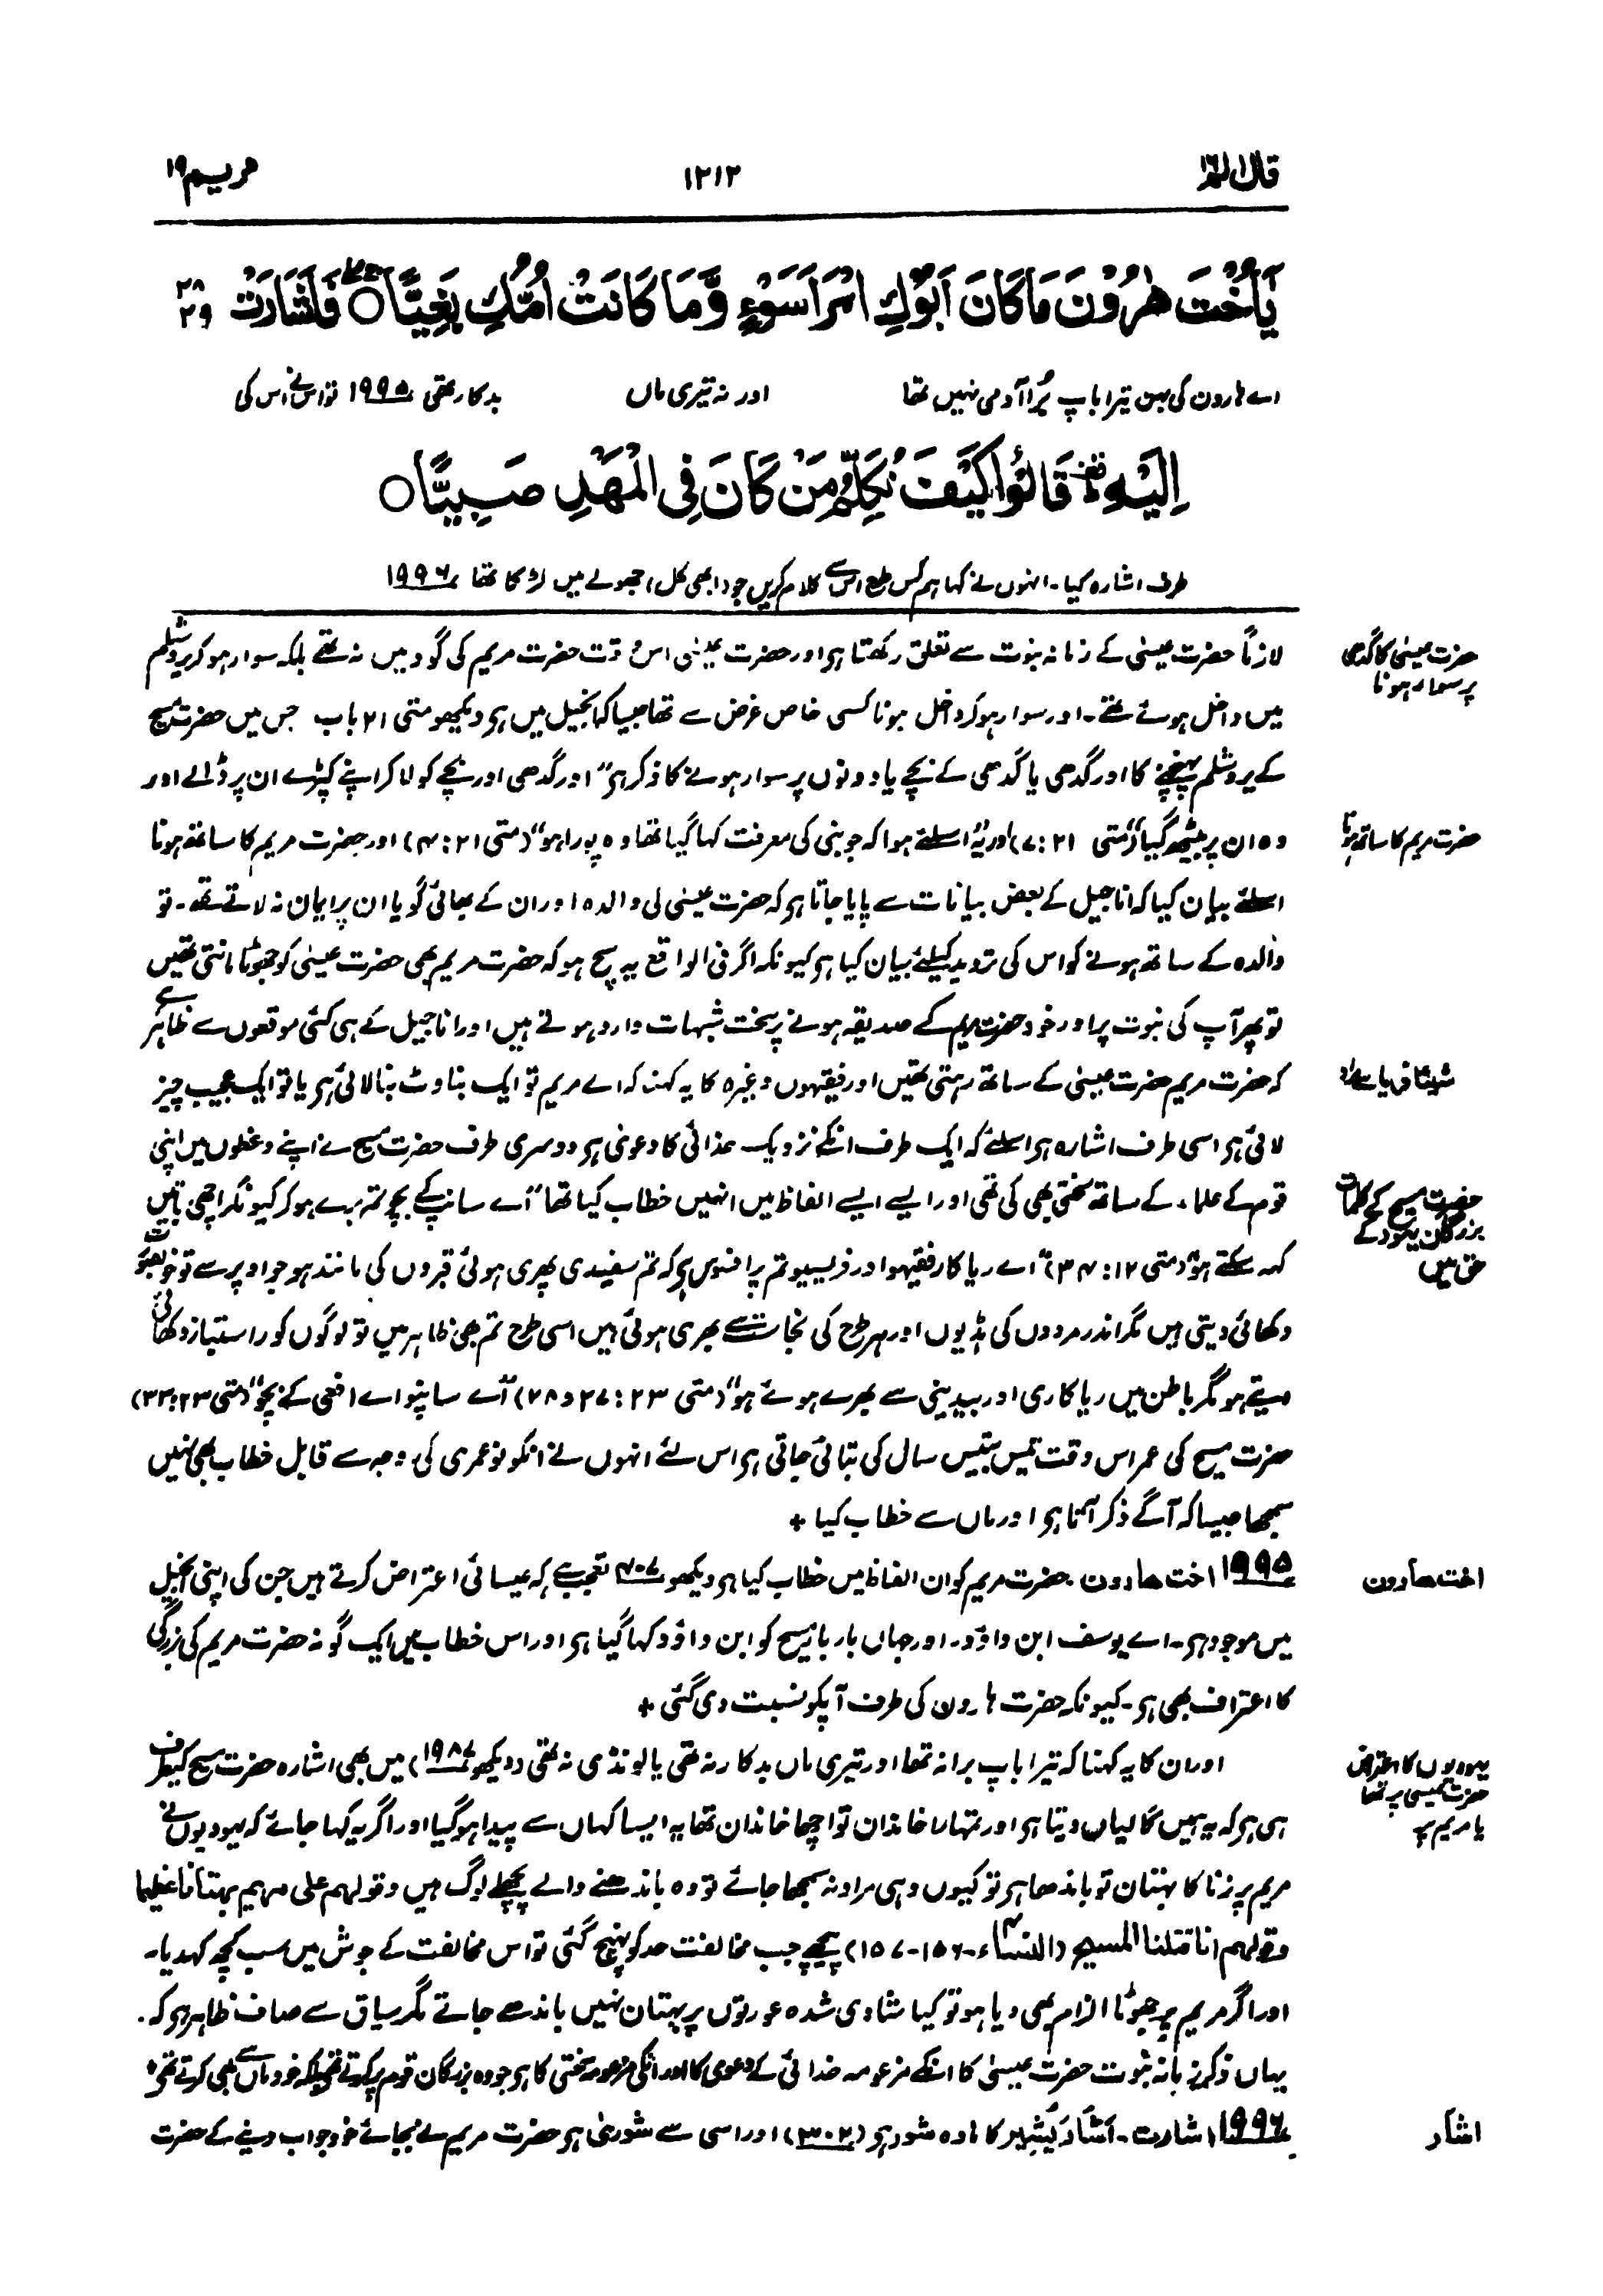 قال الم ١٦
١٢١٢
مریم ١٩
يٰۤاُخْتَ هٰرُوْنَ مَا كَانَ اَبُوْكِ امْرَاَ سَوْءٍ وَّمَا كَانَتْ اُمُّكِ بَغِيًّا ○ فَاَشَارَتْ ٢٨ ٢٩
اے ہارون کی بہن تیرا باپ بُرا آدمی نہیں تھا اور نہ تیری ماں بدکار تھی ١٩٩٥ تو اس نے اس کی
اِلَيْهِ ۚ قَالُوْا كَيْفَ نُكَلِّمُ مَنْ كَانَ فِى الْمَهْدِ صَبِيًّا ○
طرف اشارہ کیا۔ انہوں نے کہا ہم کس طرح اس سے کلام کریں جو (ابھی کل) جھولے میں لڑکا تھا ١٩٩٦
حضرت عیسیٰ کا گدھی
پر سوار ہونا
لازماً حضرت عیسیٰ کے زمانہ نبوت سے تعلق رکھتا ہو اور حضرت عیسیٰ اس وقت حضرت مریم کی گود میں نہ تھے بلکہ سوار ہو کر یروشلم
میں داخل ہوئے تھے۔ اور سوار ہو کر داخل ہونا کسی خاص غرض سے تھا جیسا کہ انجیل میں ہو دیکھو متی ٢١ باب جس میں حضرت مسیح
کے یروشلم پہنچنے کا اور گدھی یا گدھی کے بچے یا دونوں پر سوار ہونے کا ذکر ہو ”اور گدھی اور بچے کو لا کر اپنے کپڑے ان پر ڈالے اور
حضرت مریم کا ساتھ ہونا
وہ ان پر بیٹھ گیا“ (متی ٢١: ٧) اور ”یہ اسلئے ہوا کہ جو نبی کی معرفت کہا گیا تھا وہ پورا ہو“ (متی ٢١: ٤) اور حضرت مریم کا ساتھ ہونا
اسلئے بیان کیا کہ اناجیل کے بعض بیانات سے پایا جاتا ہو کہ حضرت عیسیٰ کی والدہ اور ان کے بھائی گویا ان پر ایمان نہ لاتے تھے۔ تو
والدہ کے ساتھ ہونے کو اس کی تردید کیلئے بیان کیا ہو کیونکہ اگر فی الواقع یہ سچ ہو کہ حضرت مریم بھی حضرت عیسیٰ کو جھوٹا مانتی تھیں
تو پھر آپ کی نبوت پر اور خود حضرت مریم کے صدیقہ ہونے پر سخت شبہات وارد ہوتے ہیں اور اناجیل کے ہی کئی موقعوں سے ظاہر ہے
شیئا فریا سے مراد
کہ حضرت مریم حضرت عیسیٰ کے ساتھ رہتی تھیں اور فقیہوں وغیرہ کا یہ کہنا کہ اے مریم تو ایک بناوٹ بنا لائی ہو یا تو ایک عجیب چیز
لائی ہو اسی طرف اشارہ ہو اسلئے کہ ایک طرف انکے نزدیک خدائی کا دعویٰ ہو دوسری طرف حضرت مسیح نے اپنے وعظوں میں اپنی
حضرت مسیح کے کلمات
بزرگان یہود کے
حق میں
قوم کے علماء کے ساتھ سختی بھی کی تھی اور ایسے ایسے الفاظ میں انہیں خطاب کیا تھا ”اے سانپ کے بچو تم برے ہو کر کیونکر اچھی باتیں
کہہ سکتے ہو“ (متی ١٢: ٣٤) ”اے ریاکار فقیہو اور فریسیو تم پر افسوس ہو کہ تم سفیدی پھری ہوئی قبروں کی مانند ہو جو اوپر سے تو خوبصورت
دکھائی دیتی ہیں مگر اندر مردوں کی ہڈیوں اور ہر طرح کی نجاست سے بھری ہوئی ہیں اسی طرح تم بھی ظاہر میں تو لوگوں کو راستباز دکھائی
دیتے ہو مگر باطن میں ریاکاری اور بیدینی سے بھرے ہوئے ہو“ (متی ٢٣: ٢٧ و ٢٨) ”اے سانپو اے افعی کے بچو“ (متی ٢٣: ٣٣)
حضرت مسیح کی عمر اس وقت تیس بتیس سال کی بتائی جاتی ہو اس لئے انہوں نے انکو نوعمری کی وجہ سے قابل خطاب بھی نہیں
سمجھا جیسا کہ آگے ذکر آتا ہو اور ماں سے خطاب کیا +
اخت ھارون
١٩٩٥ اخت ھارون۔ حضرت مریم کو ان الفاظ میں خطاب کیا ہو دیکھو ٤٠٧ تعجب ہے کہ عیسائی اعتراض کرتے ہیں جن کی اپنی انجیل
میں موجود ہو۔ اے یوسف ابن داؤد۔ اور جہاں بار بار مسیح کو ابن داؤد کہا گیا ہو اور اس خطاب میں ایک گونہ حضرت مریم کی بزرگی
کا اعتراف بھی ہو۔ کیونکہ حضرت ہارون کی طرف آپکو نسبت دی گئی +
یہودیوں کا اعتراض
حضرت عیسیٰ پر تھا
یا مریم پر
اور ان کا یہ کہنا کہ تیرا باپ برا نہ تھا اور تیری ماں بدکار نہ تھی یا لونڈی نہ تھی (دیکھو ١٩٨٧) میں بھی اشارہ حضرت مسیح کیطرف
ہی ہو کہ یہ ہمیں گالیاں دیتا ہو اور تمہارا خاندان تو اچھا خاندان تھا یہ ایسا کہاں سے پیدا ہو گیا اور اگر یہ کہا جائے کہ یہودیوں نے
مریم پر زنا کا بہتان تو باندھا ہو تو کیوں وہی مراد نہ سمجھا جائے تو وہ باندھنے والے پچھلے لوگ ہیں وقولهم على مريم بهتانا عظيما
وقولهم انا قتلنا المسيح (النساء ٤۔ ١٥٦-١٥٧) پیچھے جب مخالفت حد کو پہنچ گئی تو اس مخالفت کے جوش میں سب کچھ کہدیا۔
اور اگر مریم پر جھوٹا الزام بھی دیا ہو تو کیا شادی شدہ عورتوں پر بہتان نہیں باندھے جاتے مگر سیاق سے صاف ظاہر ہو کہ
یہاں ذکر زمانہ نبوت حضرت عیسیٰ کا انکے مزعومہ خدائی کے دعویٰ کا اور انکی مزعومہ سختی کا ہو جو وہ بزرگان قوم پر کرتے تھے بلکہ خود ماں سے بھی کرتے تھے +
اشار
١٩٩٦ اشارت۔ اَشَارَ یُشِیر کا مادہ شور ہو (٣٠٢) اور اسی سے شوریٰ ہو حضرت مریم نے بجائے خود جواب دینے کے حضرت